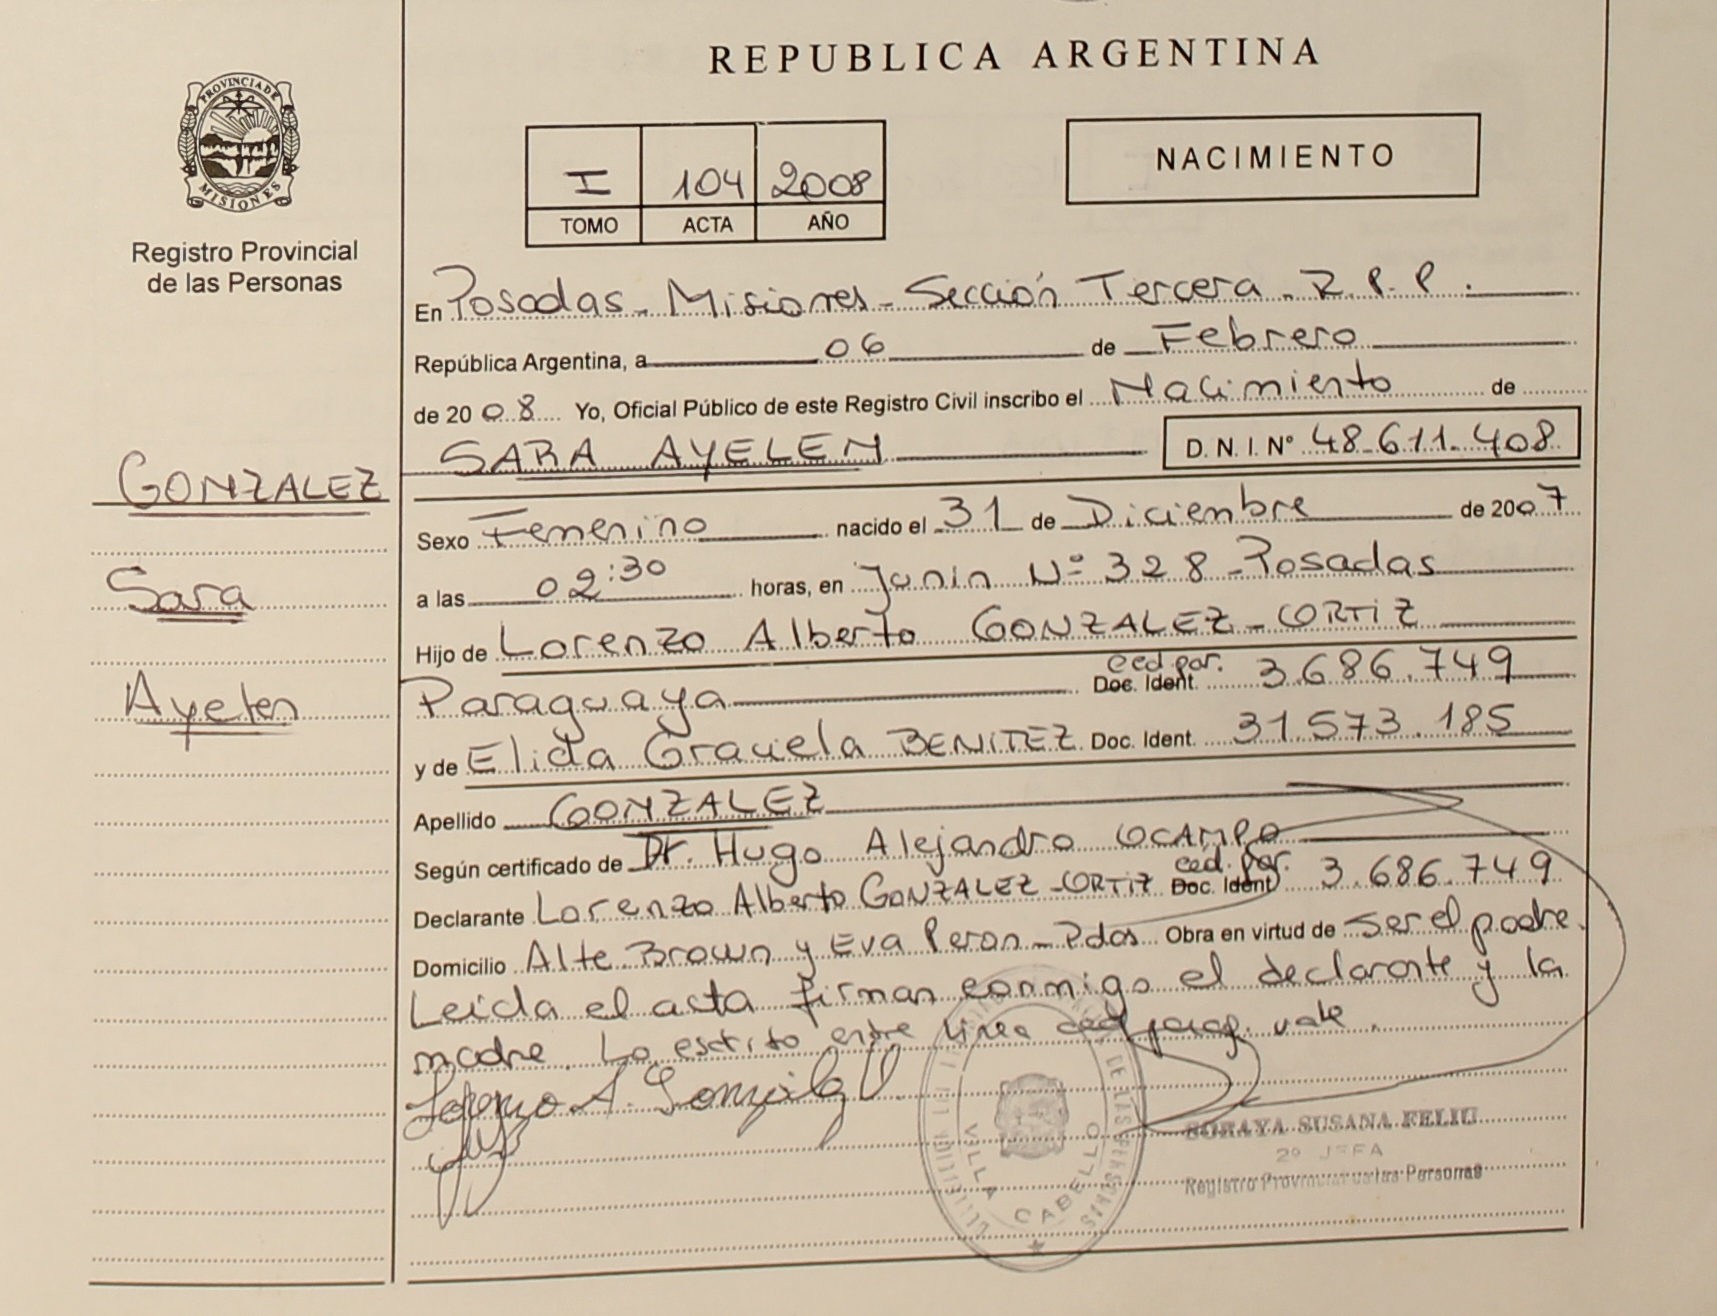 REPUBLICA ARGENTINA
PROVINCIA DE
MISIONES
Registro Provincial
de las Personas
I 104 2008
TOMO ACTA AÑO
NACIMIENTO
En Posadas - Misiones - Sección Tercera - R. P. P.
República Argentina, a 06 de Febrero
de 2008 Yo, Oficial Público de este Registro Civil inscribo el Nacimiento de
SARA AYELEN D. N. I. N° 48.611.408
GONZALEZ
Sara
Ayelen
Sexo Femenino nacido el 31 de Diciembre de 2007
a las 02:30 horas, en Junin Nº 328 - Posadas
Hijo de Lorenzo Alberto GONZALEZ - ORTIZ
Paraguaya ced par. Doc. Ident. 3.686.749
y de Elida Graciela BENITEZ Doc. Ident. 31.573.185
Apellido GONZALEZ
Según certificado de Dr. Hugo Alejandro OCAMPO
Declarante Lorenzo Alberto GONZALEZ - ORTIZ ced. par. Doc. Ident 3.686.749
Domicilio Alte Brown y Eva Peron - Pdas Obra en virtud de ser el padre.
Leida el acta firman conmigo el declarante y la
madre. Lo escrito entre linea ced parag. vale.
Lorenzo A. Gonzalez O.
VILLA CABELLO
SORAYA SUSANA FELIU
2º JEFA
Registro Provincial de las Personas